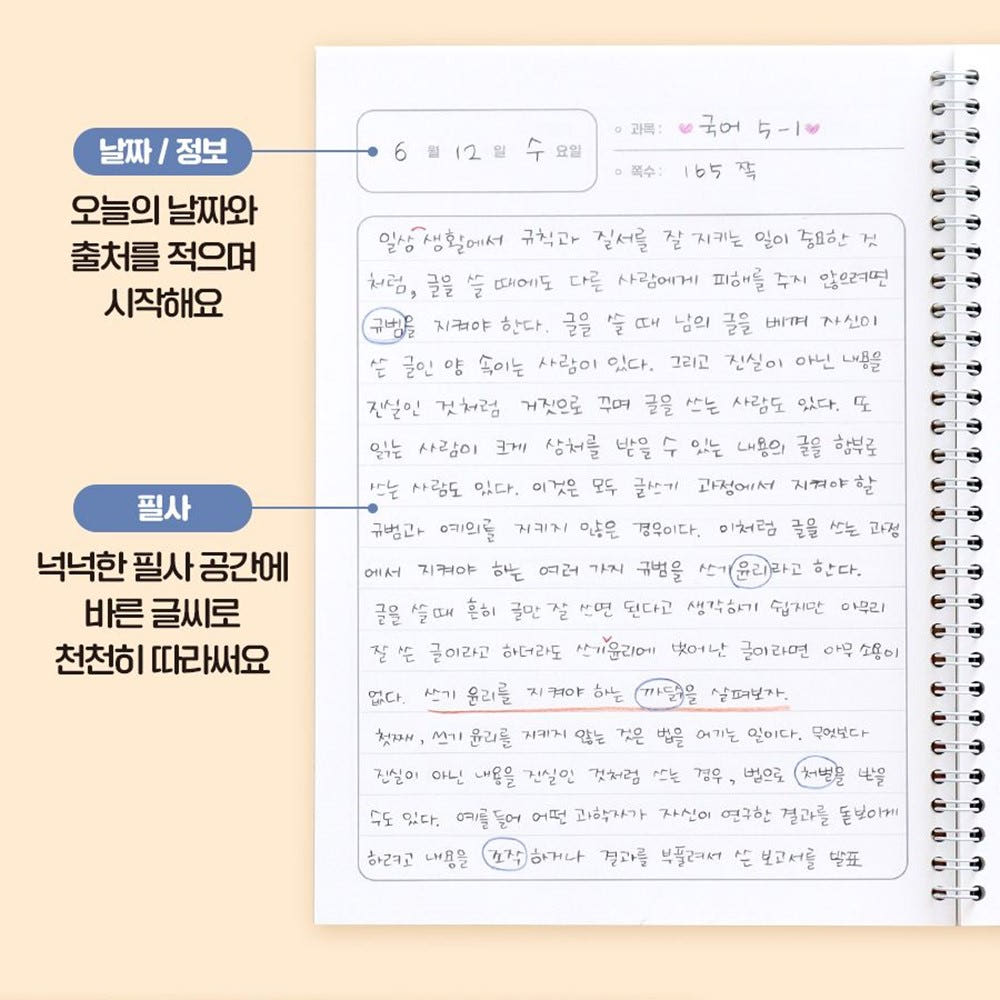 날짜 / 정보
오늘의 날짜와
출처를 적으며
시작해요
필사
넉넉한 필사 공간에
바른 글씨로
천천히 따라써요
6 월 12 일 수 요일
과목 : 국어 5-1
쪽수 : 165 쪽
일상 생활에서 규칙과 질서를 잘 지키는 일이 중요한 것
처럼, 글을 쓸 때에도 다른 사람에게 피해를 주지 않으려면
규범을 지켜야 한다. 글을 쓸 때 남의 글을 베껴 자신이
쓴 글인 양 속이는 사람이 있다. 그리고 진실이 아닌 내용을
진실인 것처럼 거짓으로 꾸며 글을 쓰는 사람도 있다. 또
읽는 사람이 크게 상처를 받을 수 있는 내용의 글을 함부로
쓰는 사람도 있다. 이것은 모두 글쓰기 과정에서 지켜야 할
규범과 예의를 지키지 않은 경우이다. 이처럼 글을 쓰는 과정
에서 지켜야 하는 여러 가지 규범을 쓰기 윤리라고 한다.
글을 쓸 때 흔히 글만 잘 쓰면 된다고 생각하기 쉽지만 아무리
잘 쓴 글이라고 하더라도 쓰기윤리에 벗어난 글이라면 아무 소용이
없다. 쓰기 윤리를 지켜야 하는 까닭을 살펴보자.
첫째, 쓰기 윤리를 지키지 않는 것은 법을 어기는 일이다. 무엇보다
진실이 아닌 내용을 진실인 것처럼 쓰는 경우, 법으로 처벌을 받을
수도 있다. 예를들어 어떤 과학자가 자신이 연구한 결과를 돋보이게
하려고 내용을 조작하거나 결과를 부풀려서 쓴 보고서를 발표